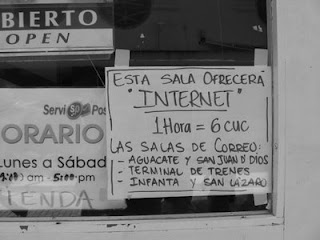 BIERTO
OPEN
ESTA SALA OFRECERÁ
"INTERNET"
1 Hora = 6 CUC
LAS SALAS DE CORREO:
- AGUACATE Y SAN JUAN D' DIOS
- TERMINAL DE TRENES
- INFANTA Y SAN LÁZARO
Servi Pos
ORARIO
Lunes a Sábad
am - 5:00 pm
TENDA